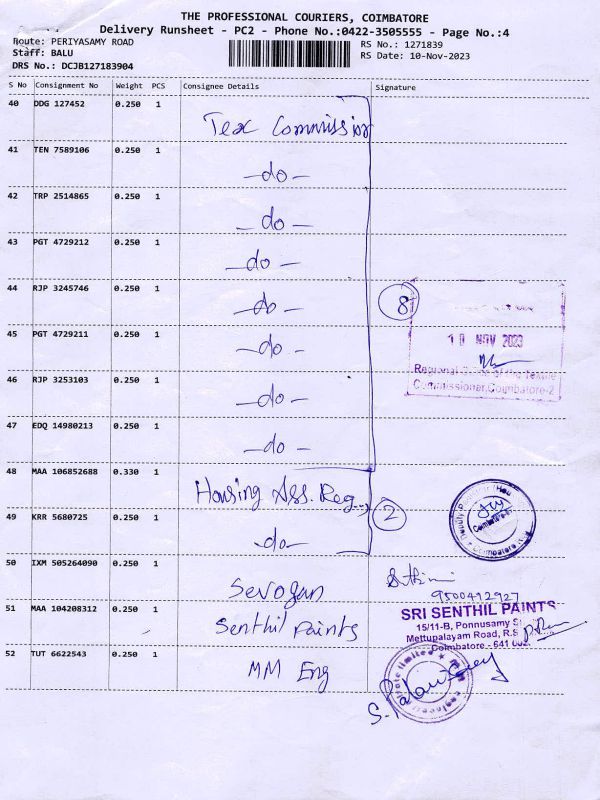 THE PROFESSIONAL COURIERS, COIMBATORE
Delivery Runsheet - PC2 - Phone No.:0422-3505555 - Page No.:4
Route: PERIYASAMY ROAD
Staff: BALU
DRS No.: DCJB127183904
RS No.: 1271839
RS Date: 10-Nov-2023
S No Consignment No Weight PCS Consignee Details Signature
40 DDG 127452 0.250 1 Tex Commission
41 TEN 7589106 0.250 1 -do-
42 TRP 2514865 0.250 1 -do-
43 PGT 4729212 0.250 1 -do-
44 RJP 3245746 0.250 1 -do- 8
45 PGT 4729211 0.250 1 -do-
10 NOV 2023
Regional of the Textile
Commissioner, Coimbatore-2
46 RJP 3253103 0.250 1 -do-
47 EDQ 14980213 0.250 1 -do-
48 MAA 106852688 0.330 1 Housing Ass. Reg..
49 KRR 5680725 0.250 1 -do- 2
Coimbatore
50 IXM 505264090 0.250 1 Sevogan
9500412927
51 MAA 104208312 0.250 1 Senthil Paints
SRI SENTHIL PAINTS
15/11-B, Ponnusamy
Mettupalayam Road, R.S
Coimbatore - 641 002
52 TUT 6622543 0.250 1 MM Eng